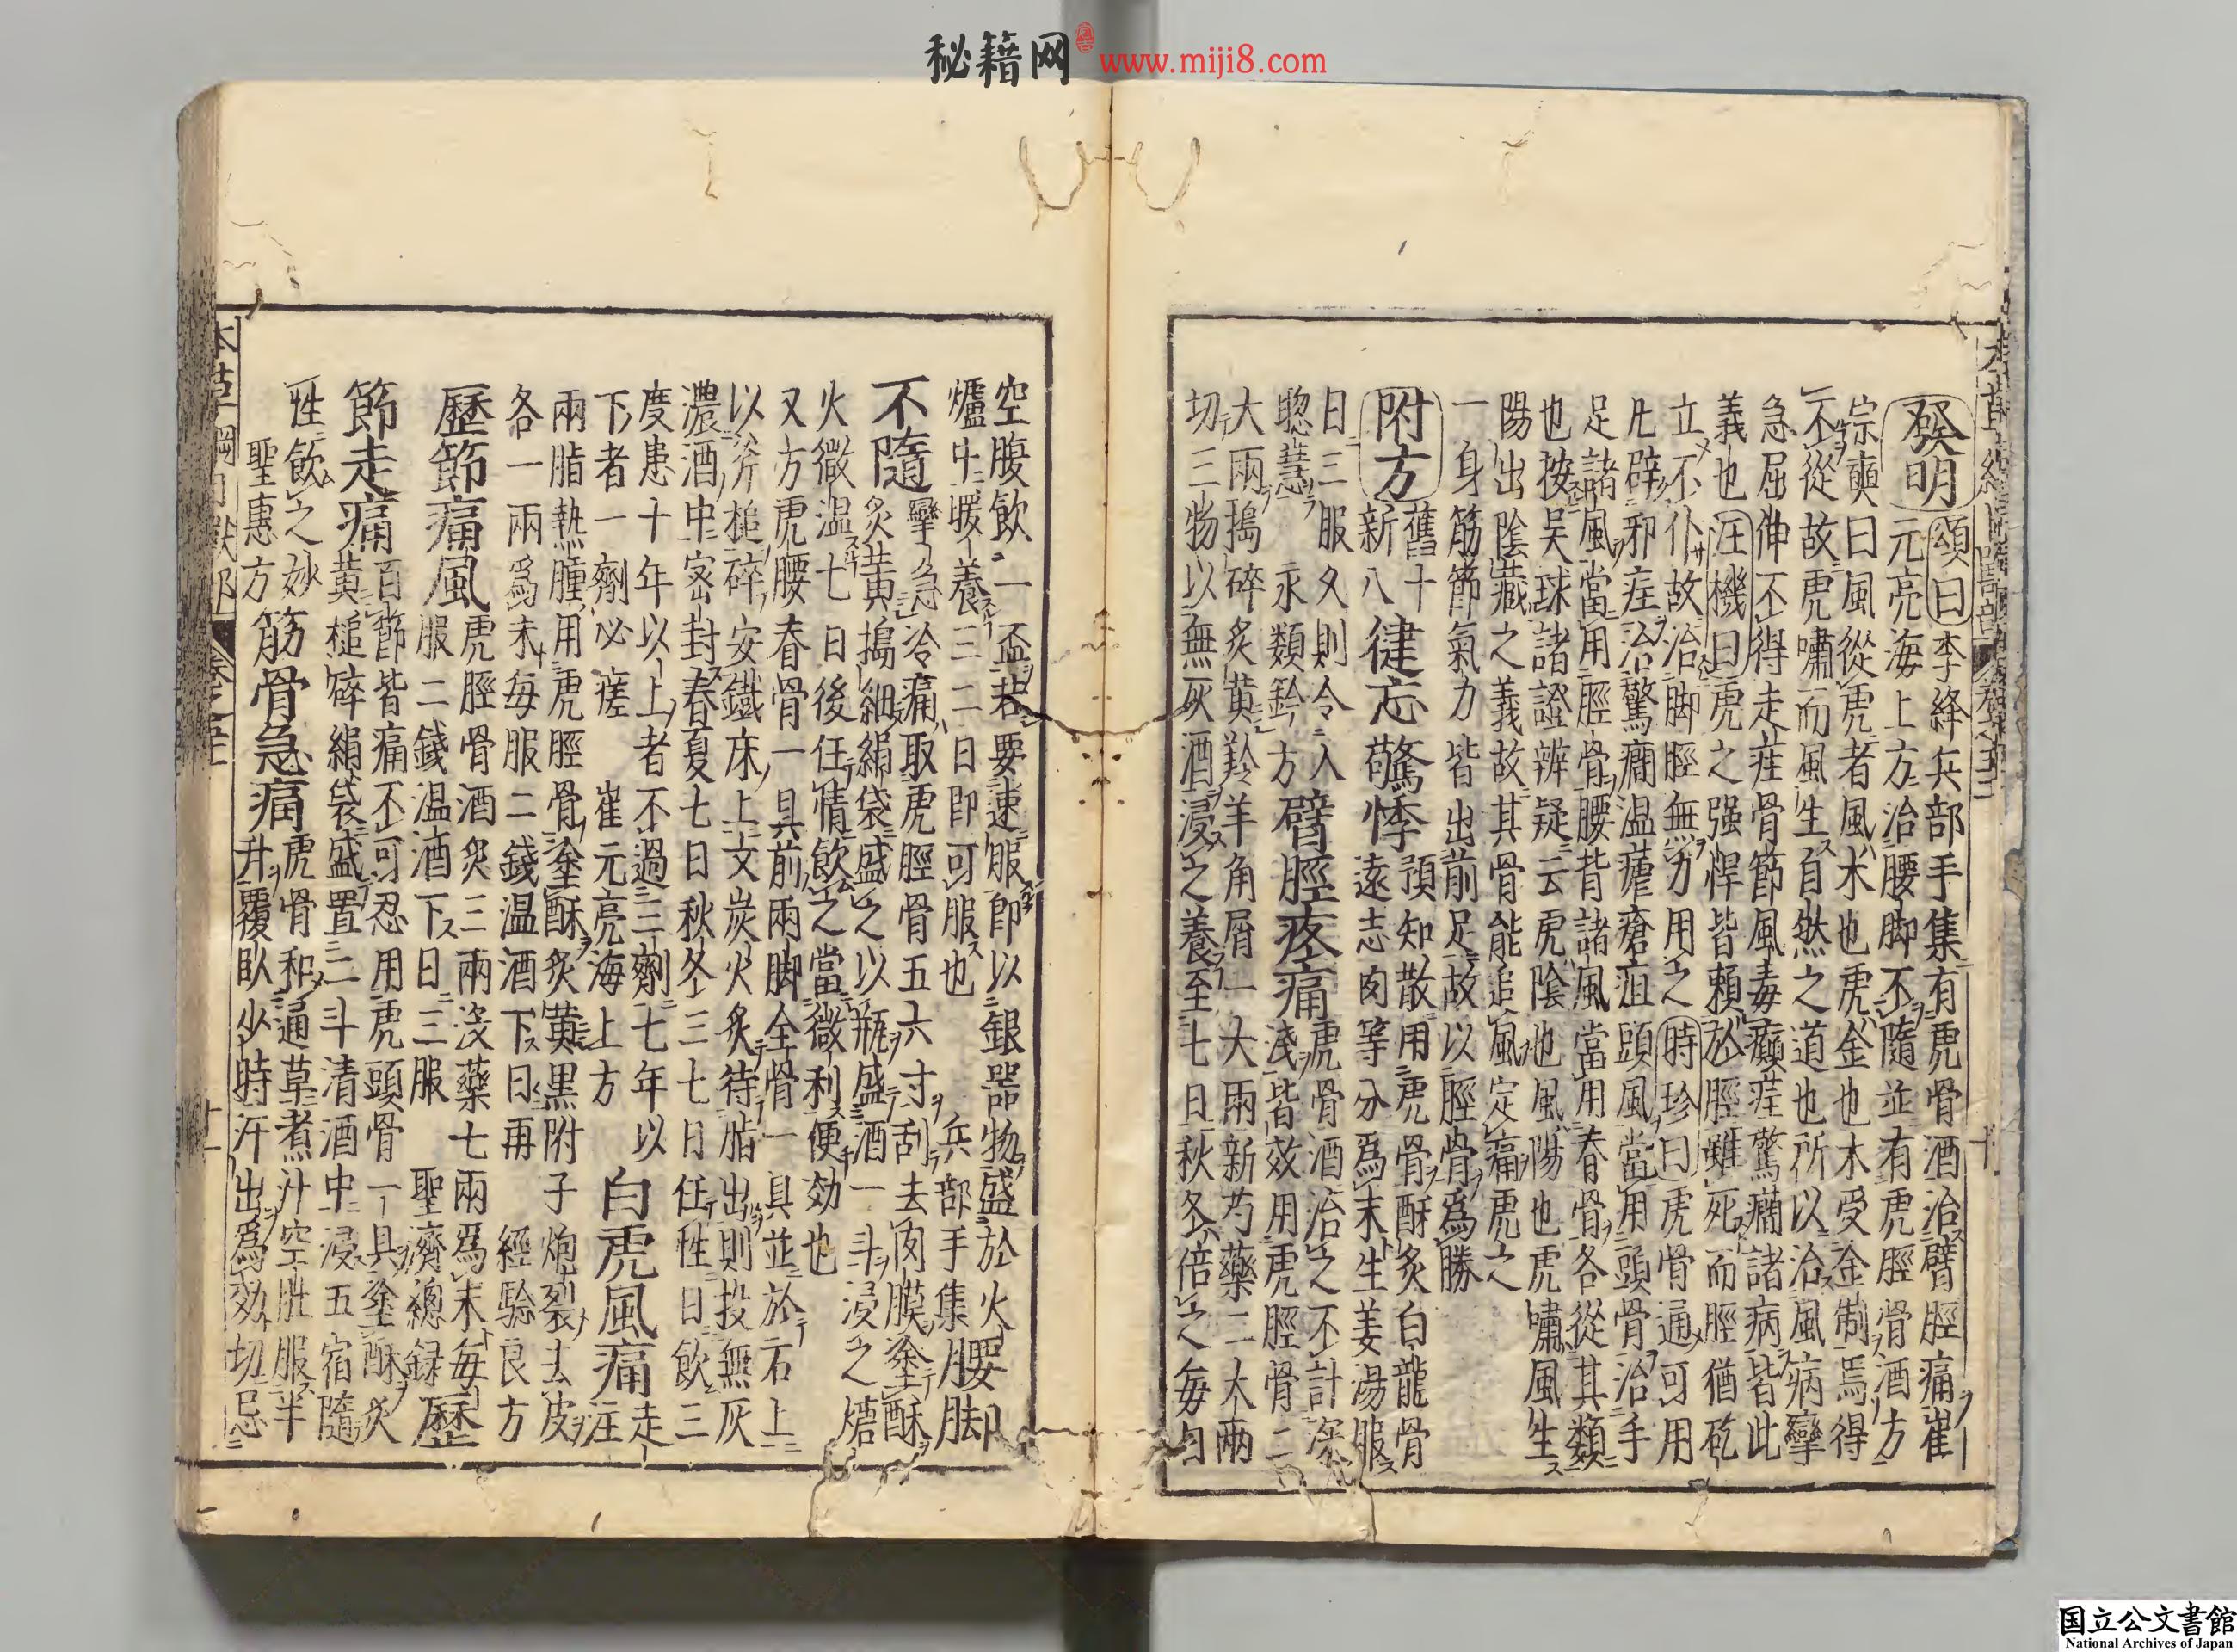 秘籍网 www.miji8.com
發明 頌曰李絳兵部手集有虎骨酒治臂脛痛崔
元亮海上方治腰脚不隨並有虎脛骨酒方
宗奭曰風從虎者風木也虎金也木受金制焉得
不從故虎嘯而風生自然之道也所以治風病攣
急屈伸不得走疰骨節風毒癲疰驚癇諸病皆此
義也汪機曰虎之强悍皆頼於脛雖死而脛猶矻
立不仆故治脚脛無力用之時珍曰虎骨通可用
凡辟邪疰治驚癇温瘧瘡疽頭風當用頭骨治手
足諸風當用脛骨腰背諸風當用脊骨各從其類
也按吴球諸證辨疑云虎陰也風陽也虎嘯風生
陽出陰藏之義故其骨能追風定痛虎之
一身筋節氣力皆出前足故以脛骨爲勝
附方 舊十新八 健忘驚悸 預知散用虎骨酥炙白龍骨
遠志肉等分爲末生姜湯服
日三服久則令人
聰慧 永類鈐方 臂脛疼痛 虎骨酒治之不計深
淺皆效用虎脛骨二
大兩搗碎炙黄羚羊角屑一大兩新芍藥二大兩
切三物以無灰酒浸之養至七日秋冬倍之每日
空腹飲一盃若要速服即以銀器物盛於火
爐中暖養三二日即可服也 兵部手集 腰脚
不隨 攣急冷痛取虎脛骨五六寸刮去肉膜塗酥
炙黄搗細絹袋盛之以瓶盛酒一斗浸之煻
火微温七日後任情飲之當微利便効也
又方虎腰脊骨一具前兩脚全骨一具並於石上
以斧槌碎安鐵床上文炭火炙待脂出則投無灰
濃酒中宻封春夏七日秋冬三七日任性日飲三
度患十年以上者不過三劑七年以
下者一劑必瘥 崔元亮海上方 白虎風痛 走
注
兩脂熱腫用虎脛骨塗酥炙黄黒附子炮裂去皮
各一兩爲末每服二錢温酒下日再 經驗良方
歷節痛風 虎脛骨酒炙三兩沒藥七兩爲末每
服二錢温酒下日三服 聖濟總録 歷
節走痛 百節皆痛不可忍用虎頭骨一具塗酥炙
黄槌碎絹袋盛置二斗清酒中浸五宿隨
性飲之妙
聖惠方 筋骨急痛 虎骨和通草煮汁空肚服半
升覆臥少時汗出爲効切忌
十
十一
国立公文書館
National Archives of Japan